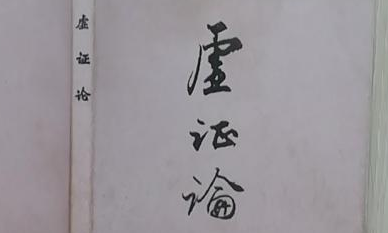 虚证论
虚证论